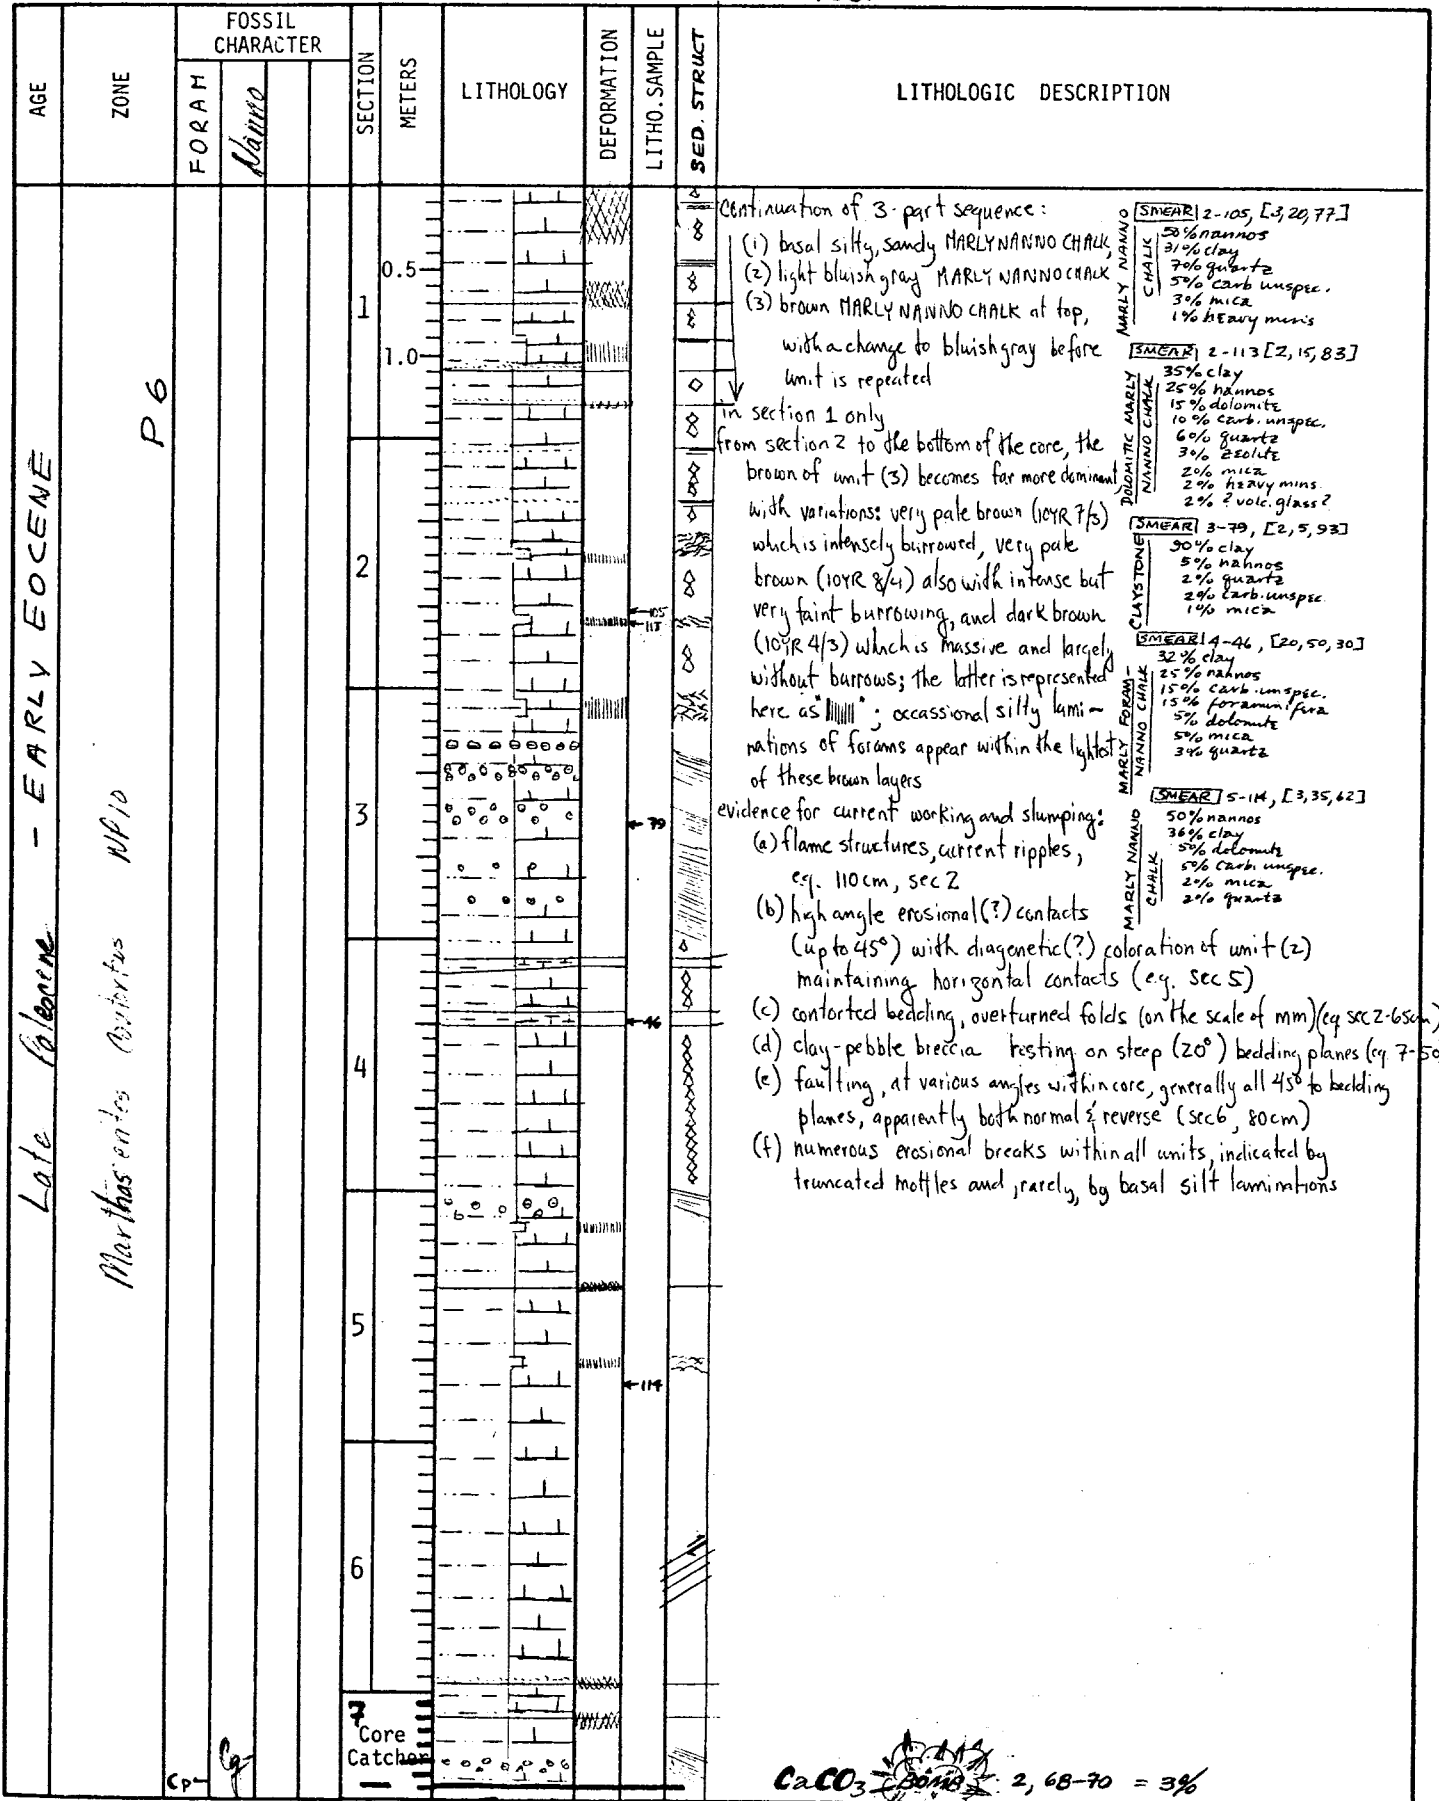 AGE
ZONE
FOSSIL
CHARACTER
FORAM
Nanno
SECTION
METERS
LITHOLOGY
DEFORMATION
LITHO. SAMPLE
SED. STRUCT
LITHOLOGIC DESCRIPTION
Late Paleocene - EARLY EOCENE
P 6
Marthasterites contortus NP10
Cp-
Cg-
1
0.5
1.0
2
3
4
5
6
7
Core
Catcher
105
113
79
46
114
Continuation of 3-part sequence:
(1) basal silty, sandy MARLY NANNO CHALK
(2) light bluish gray MARLY NANNO CHALK
(3) brown MARLY NANNO CHALK at top,
with a change to bluish gray before
unit is repeated
in section 1 only
from section 2 to the bottom of the core, the
brown of unit (3) becomes far more dominant,
with variations: very pale brown (10YR 7/3)
which is intensely burrowed, very pale
brown (10YR 8/4) also with intense but
very faint burrowing, and dark brown
(10YR 4/3) which is massive and largely
without burrows; the latter is represented
here as "||||||"; occassional silty lami-
nations of forams appear within the lightest
of these brown layers
evidence for current working and slumping:
(a) flame structures, current ripples,
e.g. 110cm, sec 2
(b) high angle erosional(?) contacts
(up to 45°) with diagenetic(?) coloration of unit (2)
maintaining horizontal contacts (e.g. sec 5)
(c) contorted bedding, overturned folds (on the scale of mm) (eg sec 2-65cm)
(d) clay-pebble breccia resting on steep (20°) bedding planes (eg. 7-50
(e) faulting, at various angles within core, generally all 45° to bedding
planes, apparently both normal & reverse (sec 6, 80cm)
(f) numerous erosional breaks within all units, indicated by
truncated mottles and, rarely, by basal silt laminations
MARLY NANNO
CHALK
SMEAR 2-105, [3,20,77]
50% nannos
31% clay
70% quartz
5% carb unspec.
3% mica
1% heavy mins
DOLOMITIC MARLY
NANNO CHALK
SMEAR 2-113 [2,15,83]
35% clay
25% nannos
15% dolomite
10% carb. unspec.
60% quartz
30% zeolite
20% mica
2% heavy mins.
2% ? volc. glass?
CLAYSTONE
SMEAR 3-79, [2,5,93]
90% clay
5% nannos
2% quartz
2% carb. unspec.
1% mica
MARLY FORAM-
NANNO CHALK
SMEAR 4-46, [20,50,30]
32% clay
25% nannos
15% carb. unspec.
15% foraminifera
5% dolomite
5% mica
3% quartz
MARLY NANNO
CHALK
SMEAR 5-114, [3,35,62]
50% nannos
36% clay
5% dolomite
5% carb. unspec.
2% mica
2% quartz
CaCO3 BOMB: 2, 68-70 = 3%